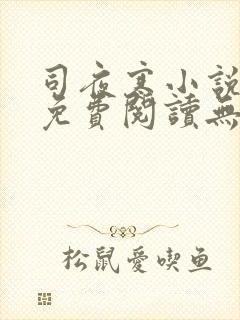 司夜寒小說
免費閱讀無
松鼠愛喫鱼